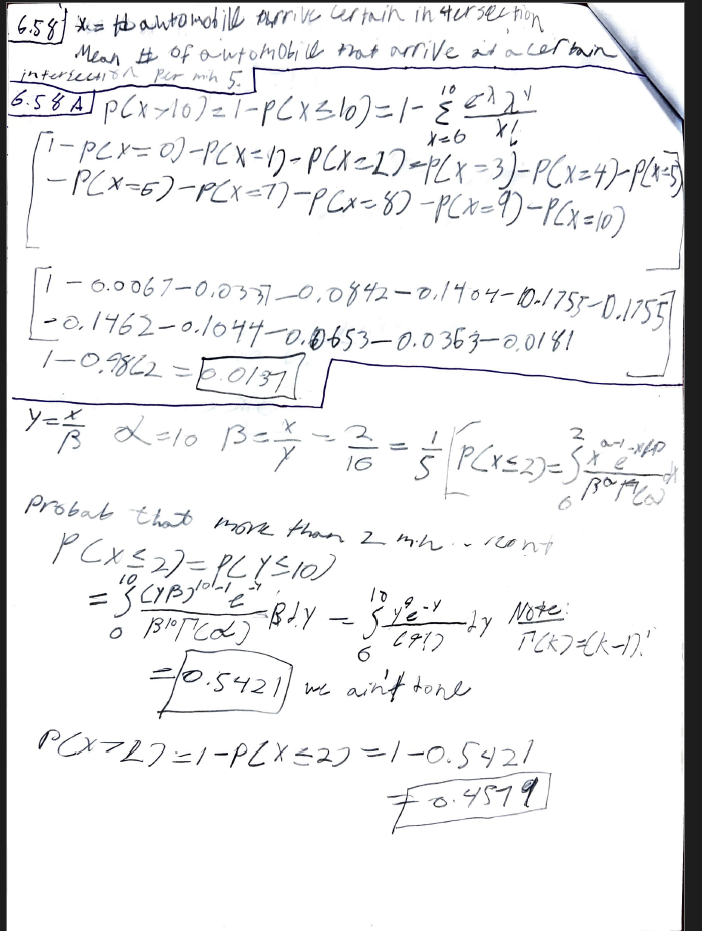 6.58 x = # automobile arrive certain intersection
Mean # of automobile that arrive at a certain
intersection per min 5.
6.58 A P(X>10) = 1-P(X≤10) = 1- Σ 10 x=0 e^-λ λ^x / x!
[1-P(X=0)-P(X=1)-P(X=2)-P(X=3)-P(X=4)-P(X=5)
-P(X=6)-P(X=7)-P(X=8)-P(X=9)-P(X=10)]
[1-0.0067-0.0337-0.0842-0.1404-0.1755-0.1755
-0.1462-0.1044-0.0653-0.0363-0.0181]
1-0.9862 = 0.0137
Y = x/β α=10 β = x/y = 2/10 = 1/5 [P(X≤2) = ∫ 2 0 x^α-1 e^-x/β / β^α Γ(α) dx
Probab that more than 2 min
P(X≤2) = P(Y≤10)
= ∫ 10 0 (yβ)^10-1 e^-y / β^10 Γ(α) β dy = ∫ 10 0 y^9 e^-y / (9!) dy Note:
Γ(k)=(k-1)!
= 0.5421 we ain't done
P(X>2) = 1-P(X≤2) = 1-0.5421
= 0.4579